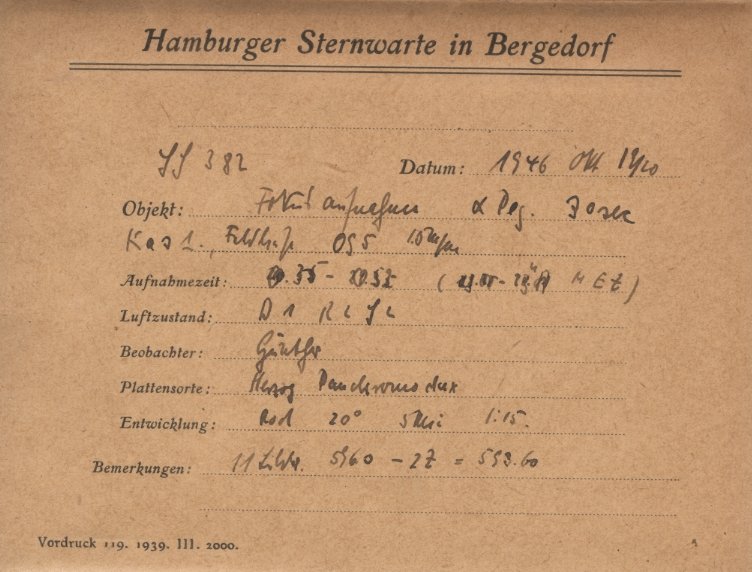 Hamburger Sternwarte in Bergedorf
382 Datum: 1946 Okt 19/20
Objekt: Fokusaufnahmen α Peg. 30 sec
Kas 1. OG5
Aufnahmezeit: MEZ)
Luftzustand: D 1 R 2 S 2
Beobachter: Günther
Plattensorte: Herzog Panchromodux
Entwicklung: Rod 20° 5 Min 1:15.
Bemerkungen: 11 5960 - 27 = 593.60
Vordruck 119. 1939. III. 2000.